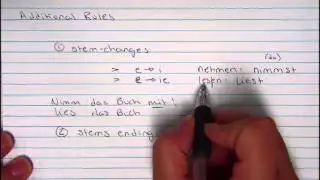 Additional Rules
① stem-changes
(du)
> e → i nehmen: nimmst
> e → ie lesen: liest
Nimm das Buch mit!
Lies das Buch
② stems ending